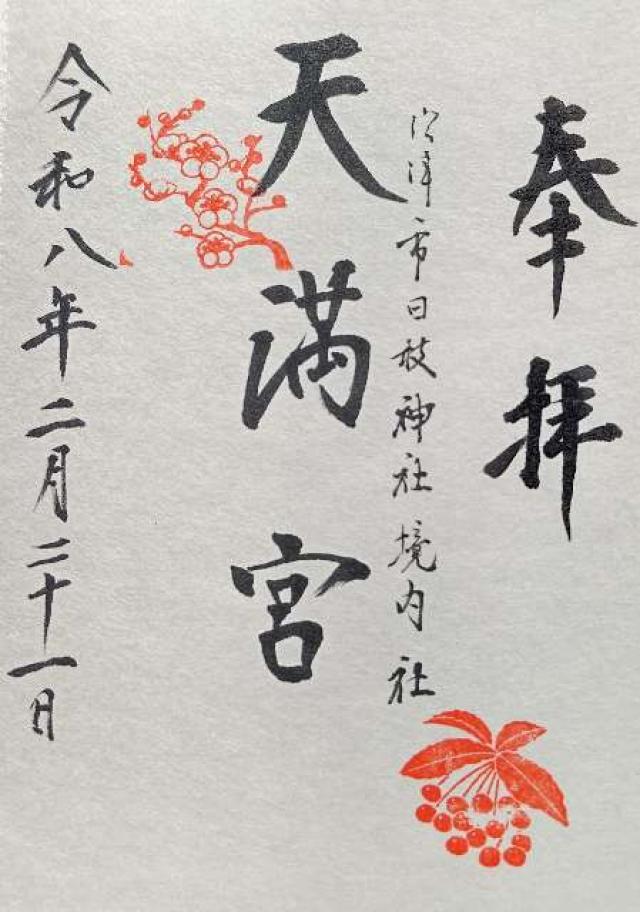 奉拝
沼津市日枝神社境内社
天満宮
令和八年二月二十一日